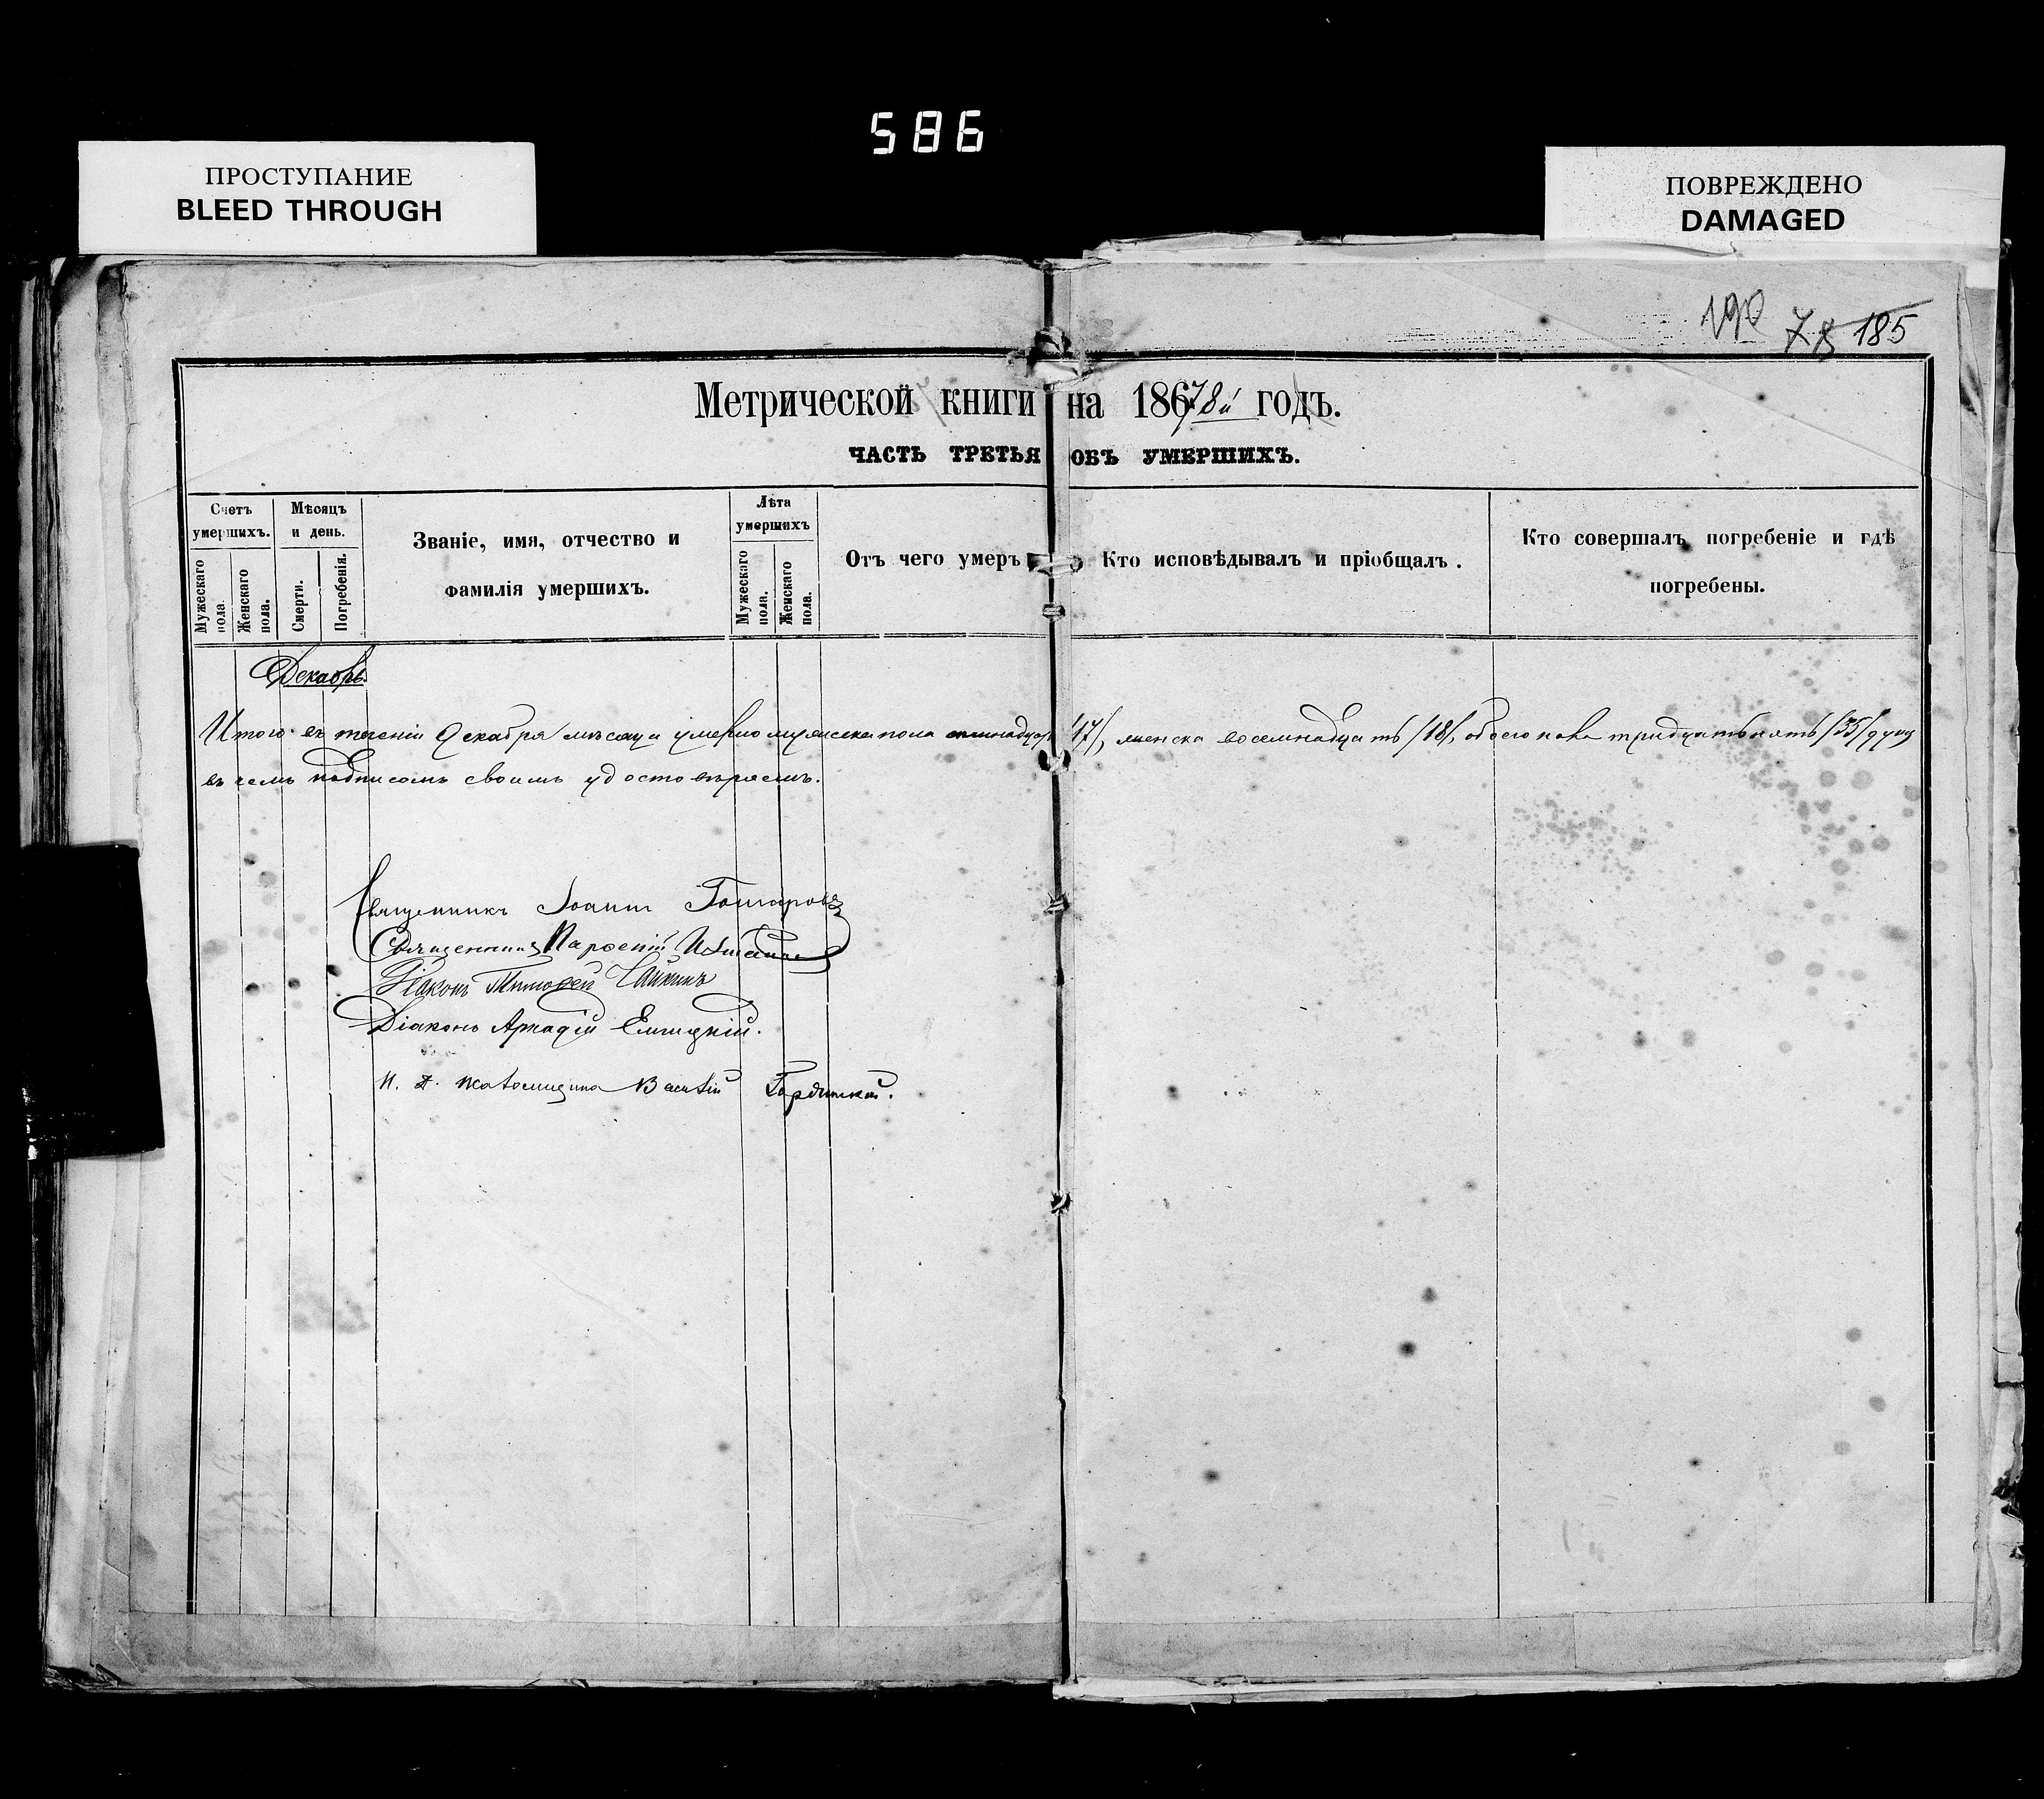 586
ПРОСТУПАНИЕ
BLEED THROUGH
ПОВРЕЖДЕНО
DAMAGED
190 185
Метрической книги на 18678й годъ.
ЧАСТЬ ТРЕТЬЯ ОБЪ УМЕРШИХЪ.
Счетъ умершихъ.
Мужескаго пола.
Женскаго пола.
Мѣсяцъ и день.
Смерти.
Погребенія.
Званіе, имя, отчество и
фамилія умершихъ.
Лѣта умершихъ
Мужескаго пола.
Женскаго пола.
Отъ чего умеръ
Кто исповѣдывалъ и пріобщалъ.
Кто совершалъ погребеніе и гдѣ
погребены.
Декабрь.
Итого въ теченіи Декабря мѣсяца умерло мужеска пола /17/, женска восемнадцать /18/, обоего пола тридцать пять /35/ душъ
въ чемъ подписомъ своимъ удостовѣряемъ.
Священникъ Іоаннъ
Священникъ Парѳеній
Діаконъ Тимоѳей Чайкинъ
Діаконъ Аркадій
И. д. псаломщика Василій